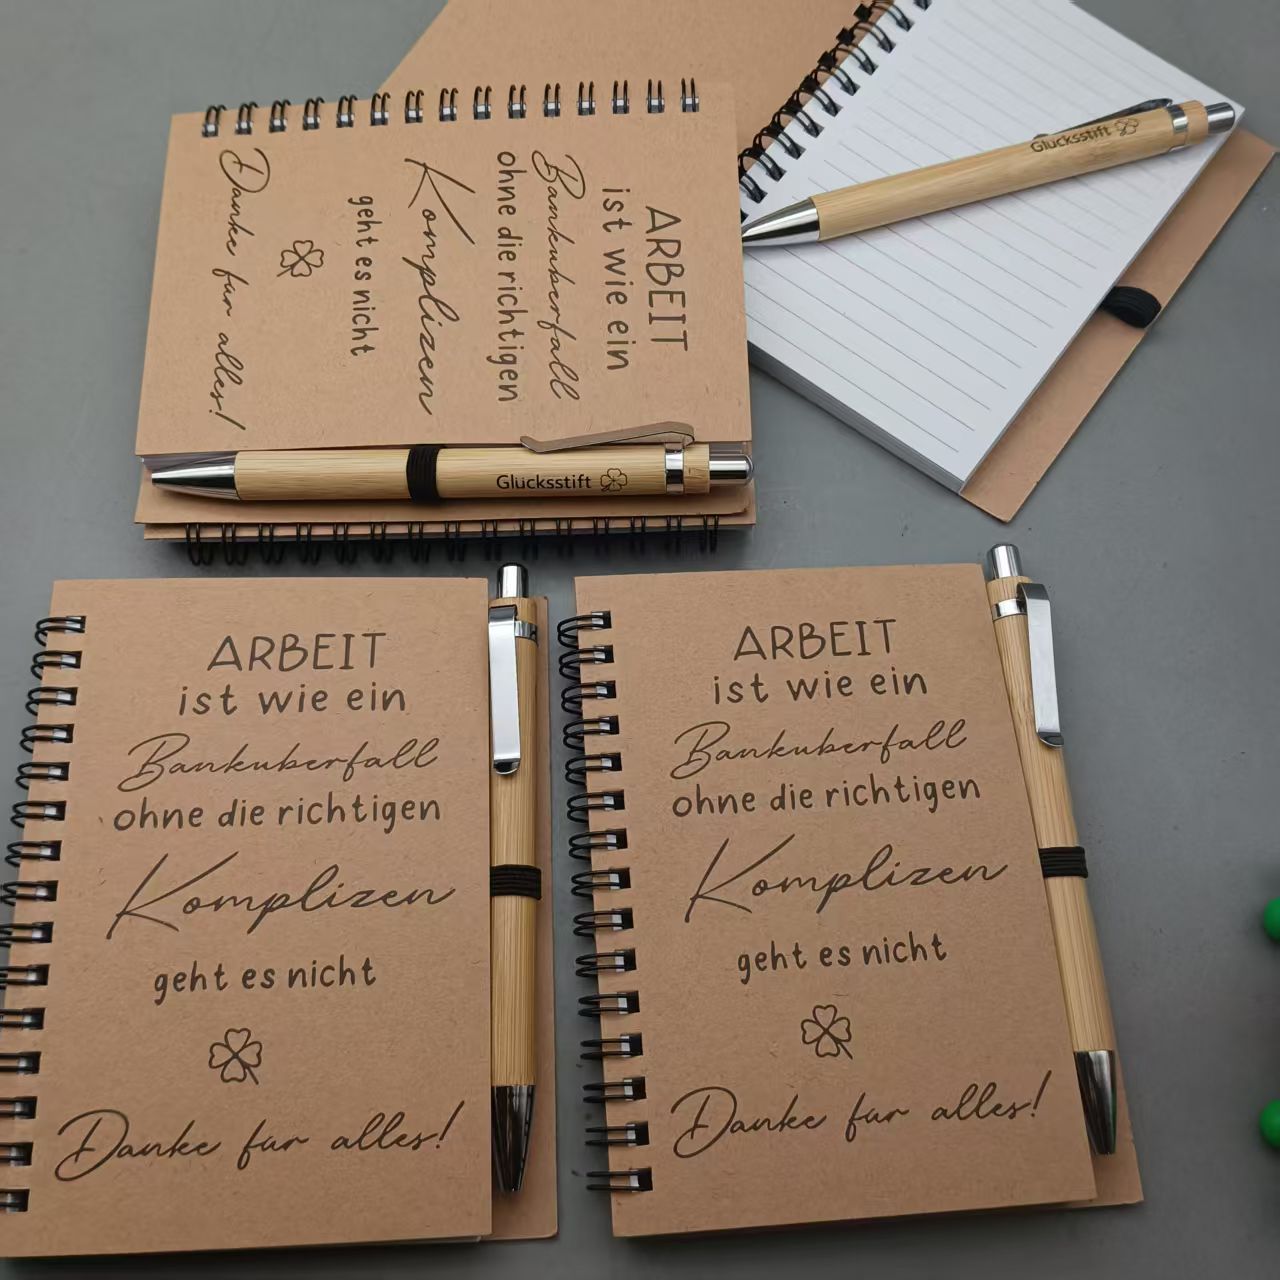 ARBEIT
ist wie ein
Bankuberfall
ohne die richtigen
Komplizen
geht es nicht
Danke fur alles!
Glücksstift
Glücksstift
ARBEIT
ist wie ein
Bankuberfall
ohne die richtigen
Komplizen
geht es nicht
Danke fur alles!
ARBEIT
ist wie ein
Bankuberfall
ohne die richtigen
Komplizen
geht es nicht
Danke fur alles!